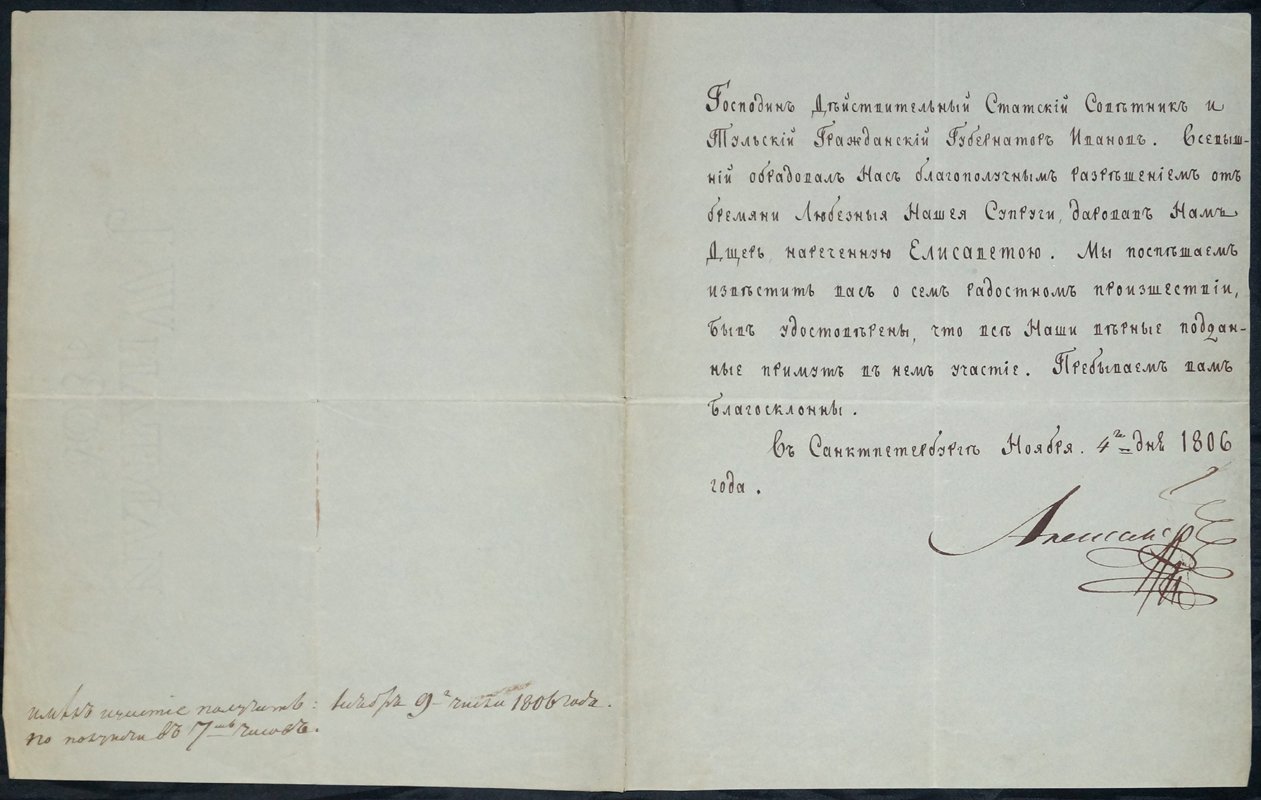 имѣлъ щастіе получить: Ноября 9го числа 1806 года.
по полуночи въ 7мъ часовъ.
Господинъ Дѣйствительный Статскій Совѣтникъ и
Тульскій Гражданскій Губернаторъ Ивановъ. Всевыш-
ній обрадовалъ Насъ благополучнымъ разрѣшеніемъ отъ
бремяни Любезныя Нашея Супруги, даровавъ Намъ
Дщерь, нареченную Елисаветою. Мы поспѣшаемъ
извѣстить васъ о семъ радостномъ произшествіи,
бывъ удостовѣрены, что всѣ Наши вѣрные поддан-
ные примутъ въ немъ участіе. Пребываемъ вамъ
благосклонны.
Въ Санктпетербургѣ Ноября. 4го днѣ 1806
года.
Александръ